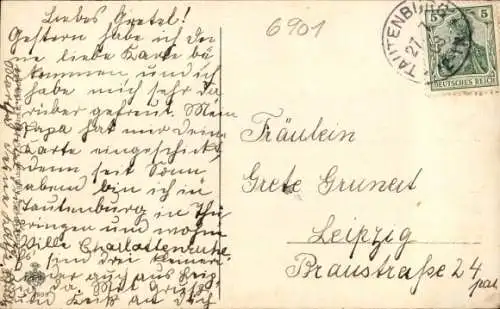 Liebes Gretel!
Gestern habe ich Dei
ne liebe Karte be
kommen und ich
habe mich sehr da
rüber gefreut. Mein
Papa hat mir Deine
Karte eingeschickt,
denn seit Sonn
abend bin ich in
Tautenburg in Thü
ringen und wohne
Ville Charlottenruhe.
Es sind drei Kinner
aus Leip
da. Mit Gruß
und Kuß an Dich
6901
TAUTENBURG
27
5 5
DEUTSCHES REICH
Fräulein
Grete Grunert
Leipzig
Braustraße 24